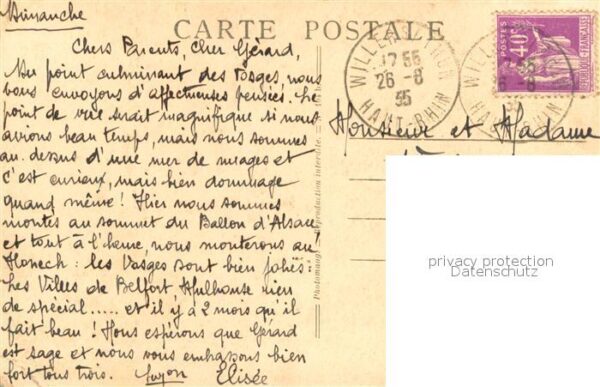 Dimanche
CARTE POSTALE
Chers Parents, Cher Gérard,
Au point culminant des Vosges, nous
vous envoyons d'affectueuses pensées. Le
point de vue serait magnifique si nous
avions beau temps, mais nous sommes
au dessus d'une mer de nuages et
c'est curieux, mais bien dommage
quand même ! Hier nous sommes
montés au sommet du Ballon d'Alsace
et tout à l'heure, nous monterons au
Honeck : les Vosges sont bien jolies :
Les Villes de Belfort Mulhouse rien
de spécial ..... et il y a 2 mois qu'il
fait beau ! Nous espérons que Gérard
est sage et nous vous embrassons bien
fort tous trois.
Elisée
reproduction interdite.
WILLER HAUT-RHIN
26-8
35
POSTES
40c
Monsieur et Madame
privacy protection
Datenschutz